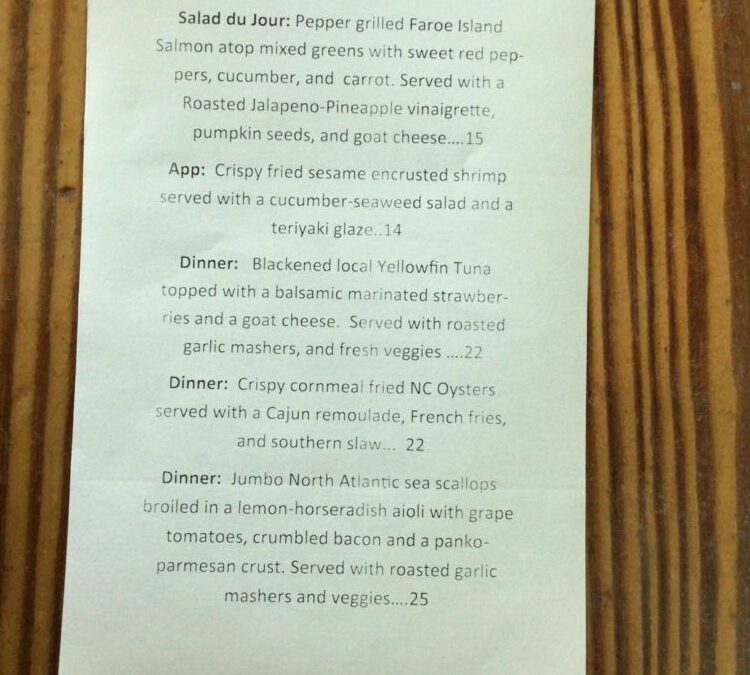 Salad du Jour: Pepper grilled Faroe Island
Salmon atop mixed greens with sweet red pep-
pers, cucumber, and carrot. Served with a
Roasted Jalapeno-Pineapple vinaigrette,
pumpkin seeds, and goat cheese....15
App: Crispy fried sesame encrusted shrimp
served with a cucumber-seaweed salad and a
teriyaki glaze..14
Dinner: Blackened local Yellowfin Tuna
topped with a balsamic marinated strawber-
ries and a goat cheese. Served with roasted
garlic mashers, and fresh veggies ....22
Dinner: Crispy cornmeal fried NC Oysters
served with a Cajun remoulade, French fries,
and southern slaw... 22
Dinner: Jumbo North Atlantic sea scallops
broiled in a lemon-horseradish aioli with grape
tomatoes, crumbled bacon and a panko-
parmesan crust. Served with roasted garlic
mashers and veggies....25